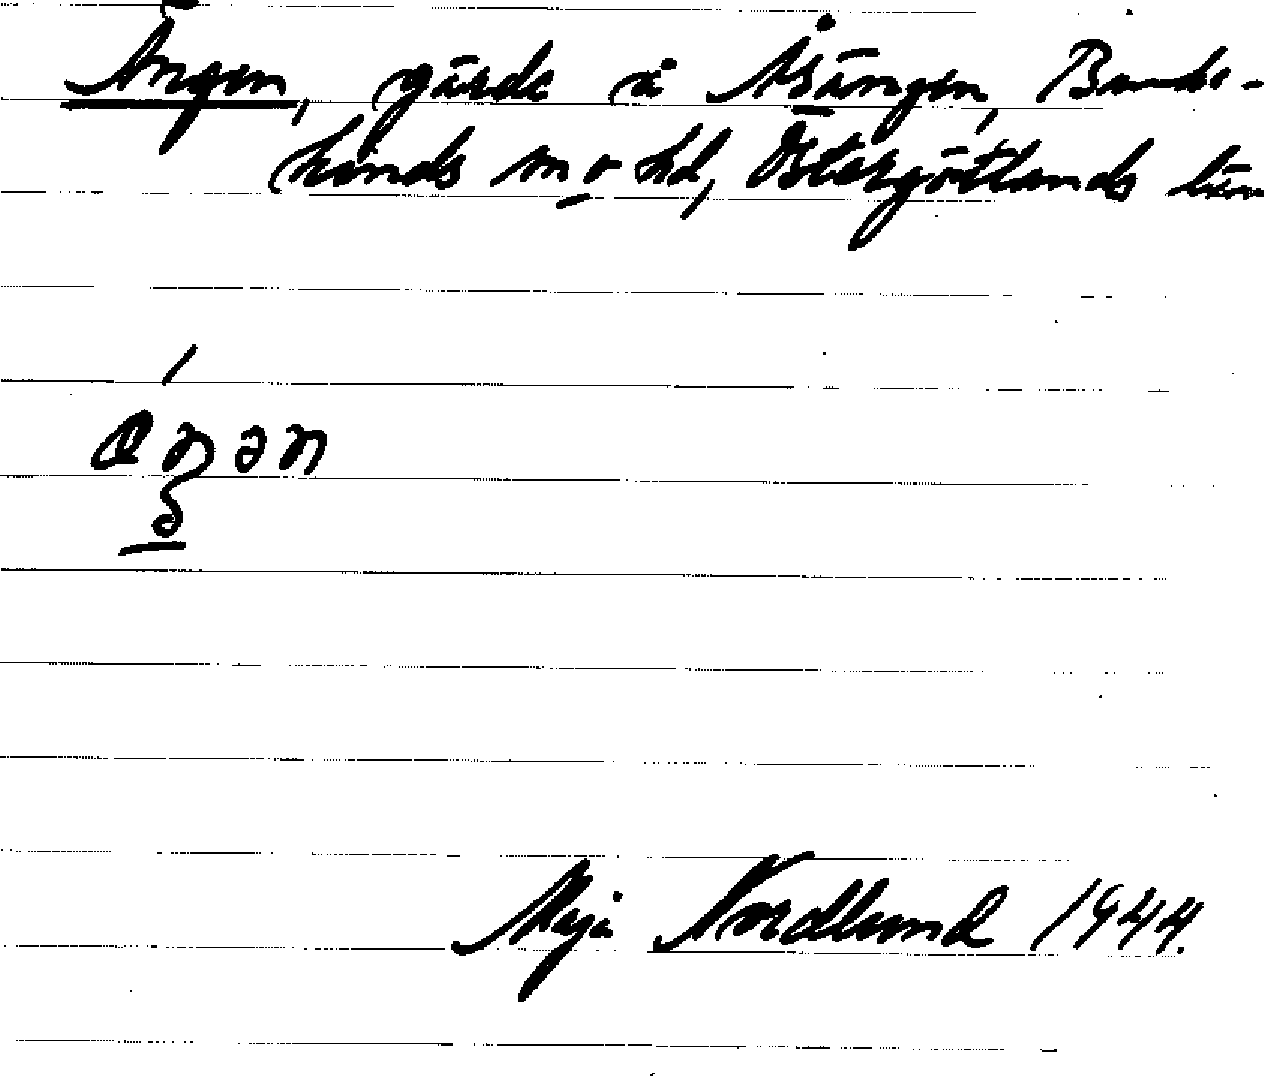 Ängen, gärde å Åsängen, Bankekinds sn o hd, Östergötlands län
Maja Nordlund 1944.